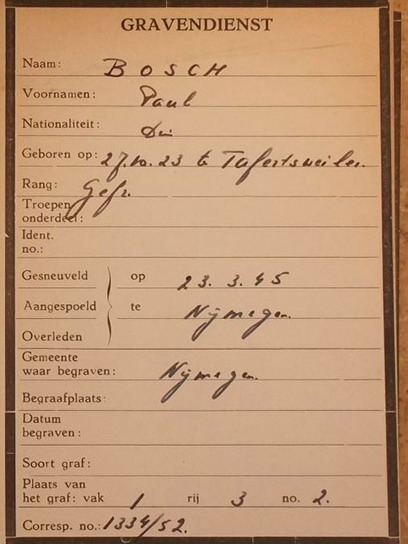 GRAVENDIENST
Naam: BOSCH
Voornamen: Paul
Nationaliteit: Dui
Geboren op: 27.10.23 te Tafertsweiler.
Rang: Gefr.
Troepen
onderdeel:
Ident.
no.:
Gesneuveld } op 23.3.45
Aangespoeld te Nijmegen.
Overleden
Gemeente
waar begraven: Nijmegen.
Begraafplaats:
Datum
begraven:
Soort graf:
Plaats van
het graf: vak 1 rij 3 no. 2.
Corresp. no.: 1334/52.